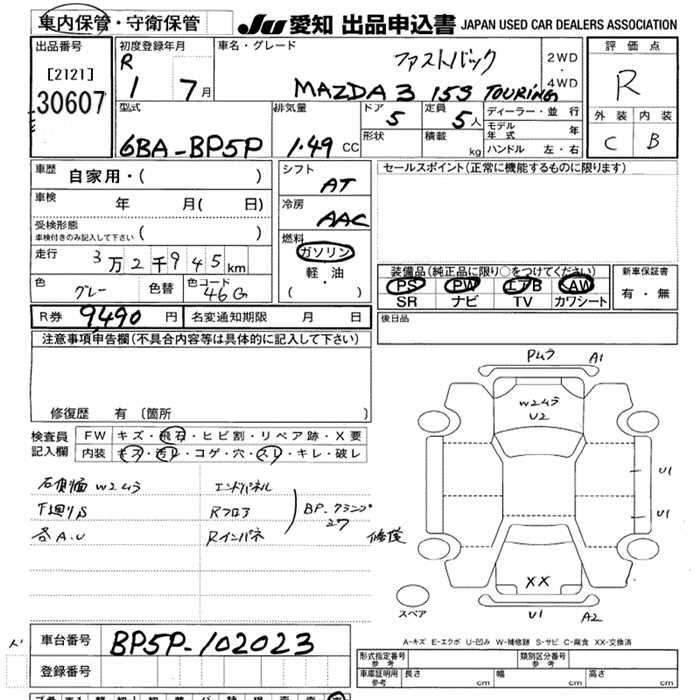 車内保管・守衛保管
JU 愛知 出品申込書 JAPAN USED CAR DEALERS ASSOCIATION
出品番号
[2121]
30607
初度登録年月
R 1 7月
車名・グレード
ファストバック
MAZDA 3 15S TOURING
2WD
・
4WD
評価点
R
外装 内装
C B
型式
6BA-BP5P
排気量
1.49 CC
ドア
5
定員
5人
形状
積載
kg
ディーラー・並行
モデル年式 年
ハンドル 左・右
車歴 自家用・( )
車検 年 月( 日)
受検形態
車検付きのみ記入して下さい ( )
走行 3万2千945km
色 グレー 色替 色コード 46G
シフト
AT
冷房
AAC
燃料
ガソリン
軽・油
( ・ )
セールスポイント(正常に機能するものに限ります)
装備品(純正品に限り○をつけてください)
PS PW エアB AW
SR ナビ TV カワシート
新車保証書
有・無
R券 9,490 円 名変通知期限 月 日
後日品
注意事項申告欄(不具合内容等は具体的に記入して下さい)
修復歴 有 〔箇所 〕
検査員
記入欄
FW キズ・飛石・ヒビ割・リペア跡・X要
内装 キズ・汚レ・コゲ・穴・スレ・キレ・破レ
右側面W2ムラ
下廻りS
各A.U
エンドパネル
Rフロア
Rインパネ
BP.クランプ
修復
Pムラ A1
W2ムラ
U2
U1
U1
XX
U1 A2
スペア
A-キズ E-エクボ U-凹み W-補修跡 S-サビ C-腐食 XX-交換済
車台番号 BP5P-102023
登録番号
形式指定番号
参考
類別区分番号
参考
車庫証明用
参考
長さ cm 幅 cm 高さ cm